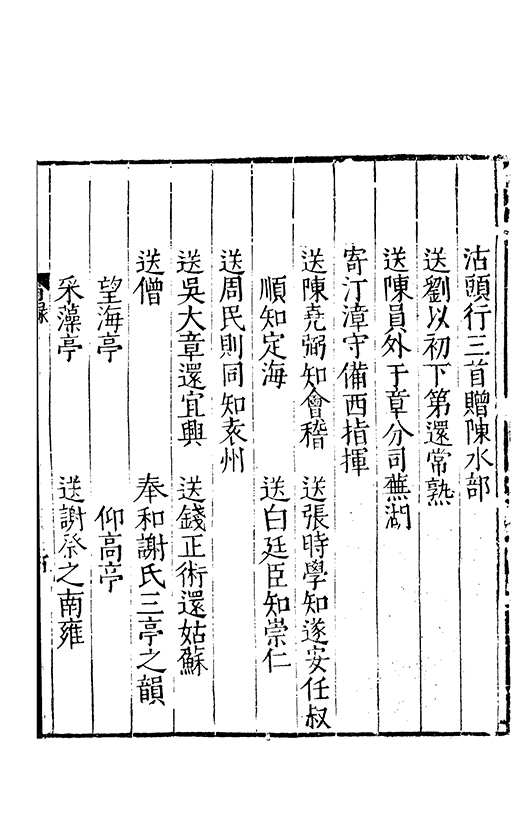 沽頭行三首贈陳水部
送劉以初下第還常熟
送陳員外于章分司蕪湖
寄汀漳守備西指揮
送陳堯弼知會稽　送張時學知遂安任叔
順知定海　送白廷臣知崇仁
送周民則同知袁州
送吳大章還宜興　送錢正術還姑蘇
送僧　奉和謝氏三亭之韻
望海亭　仰高亭
采藻亭　送謝癸之南雍
目錄